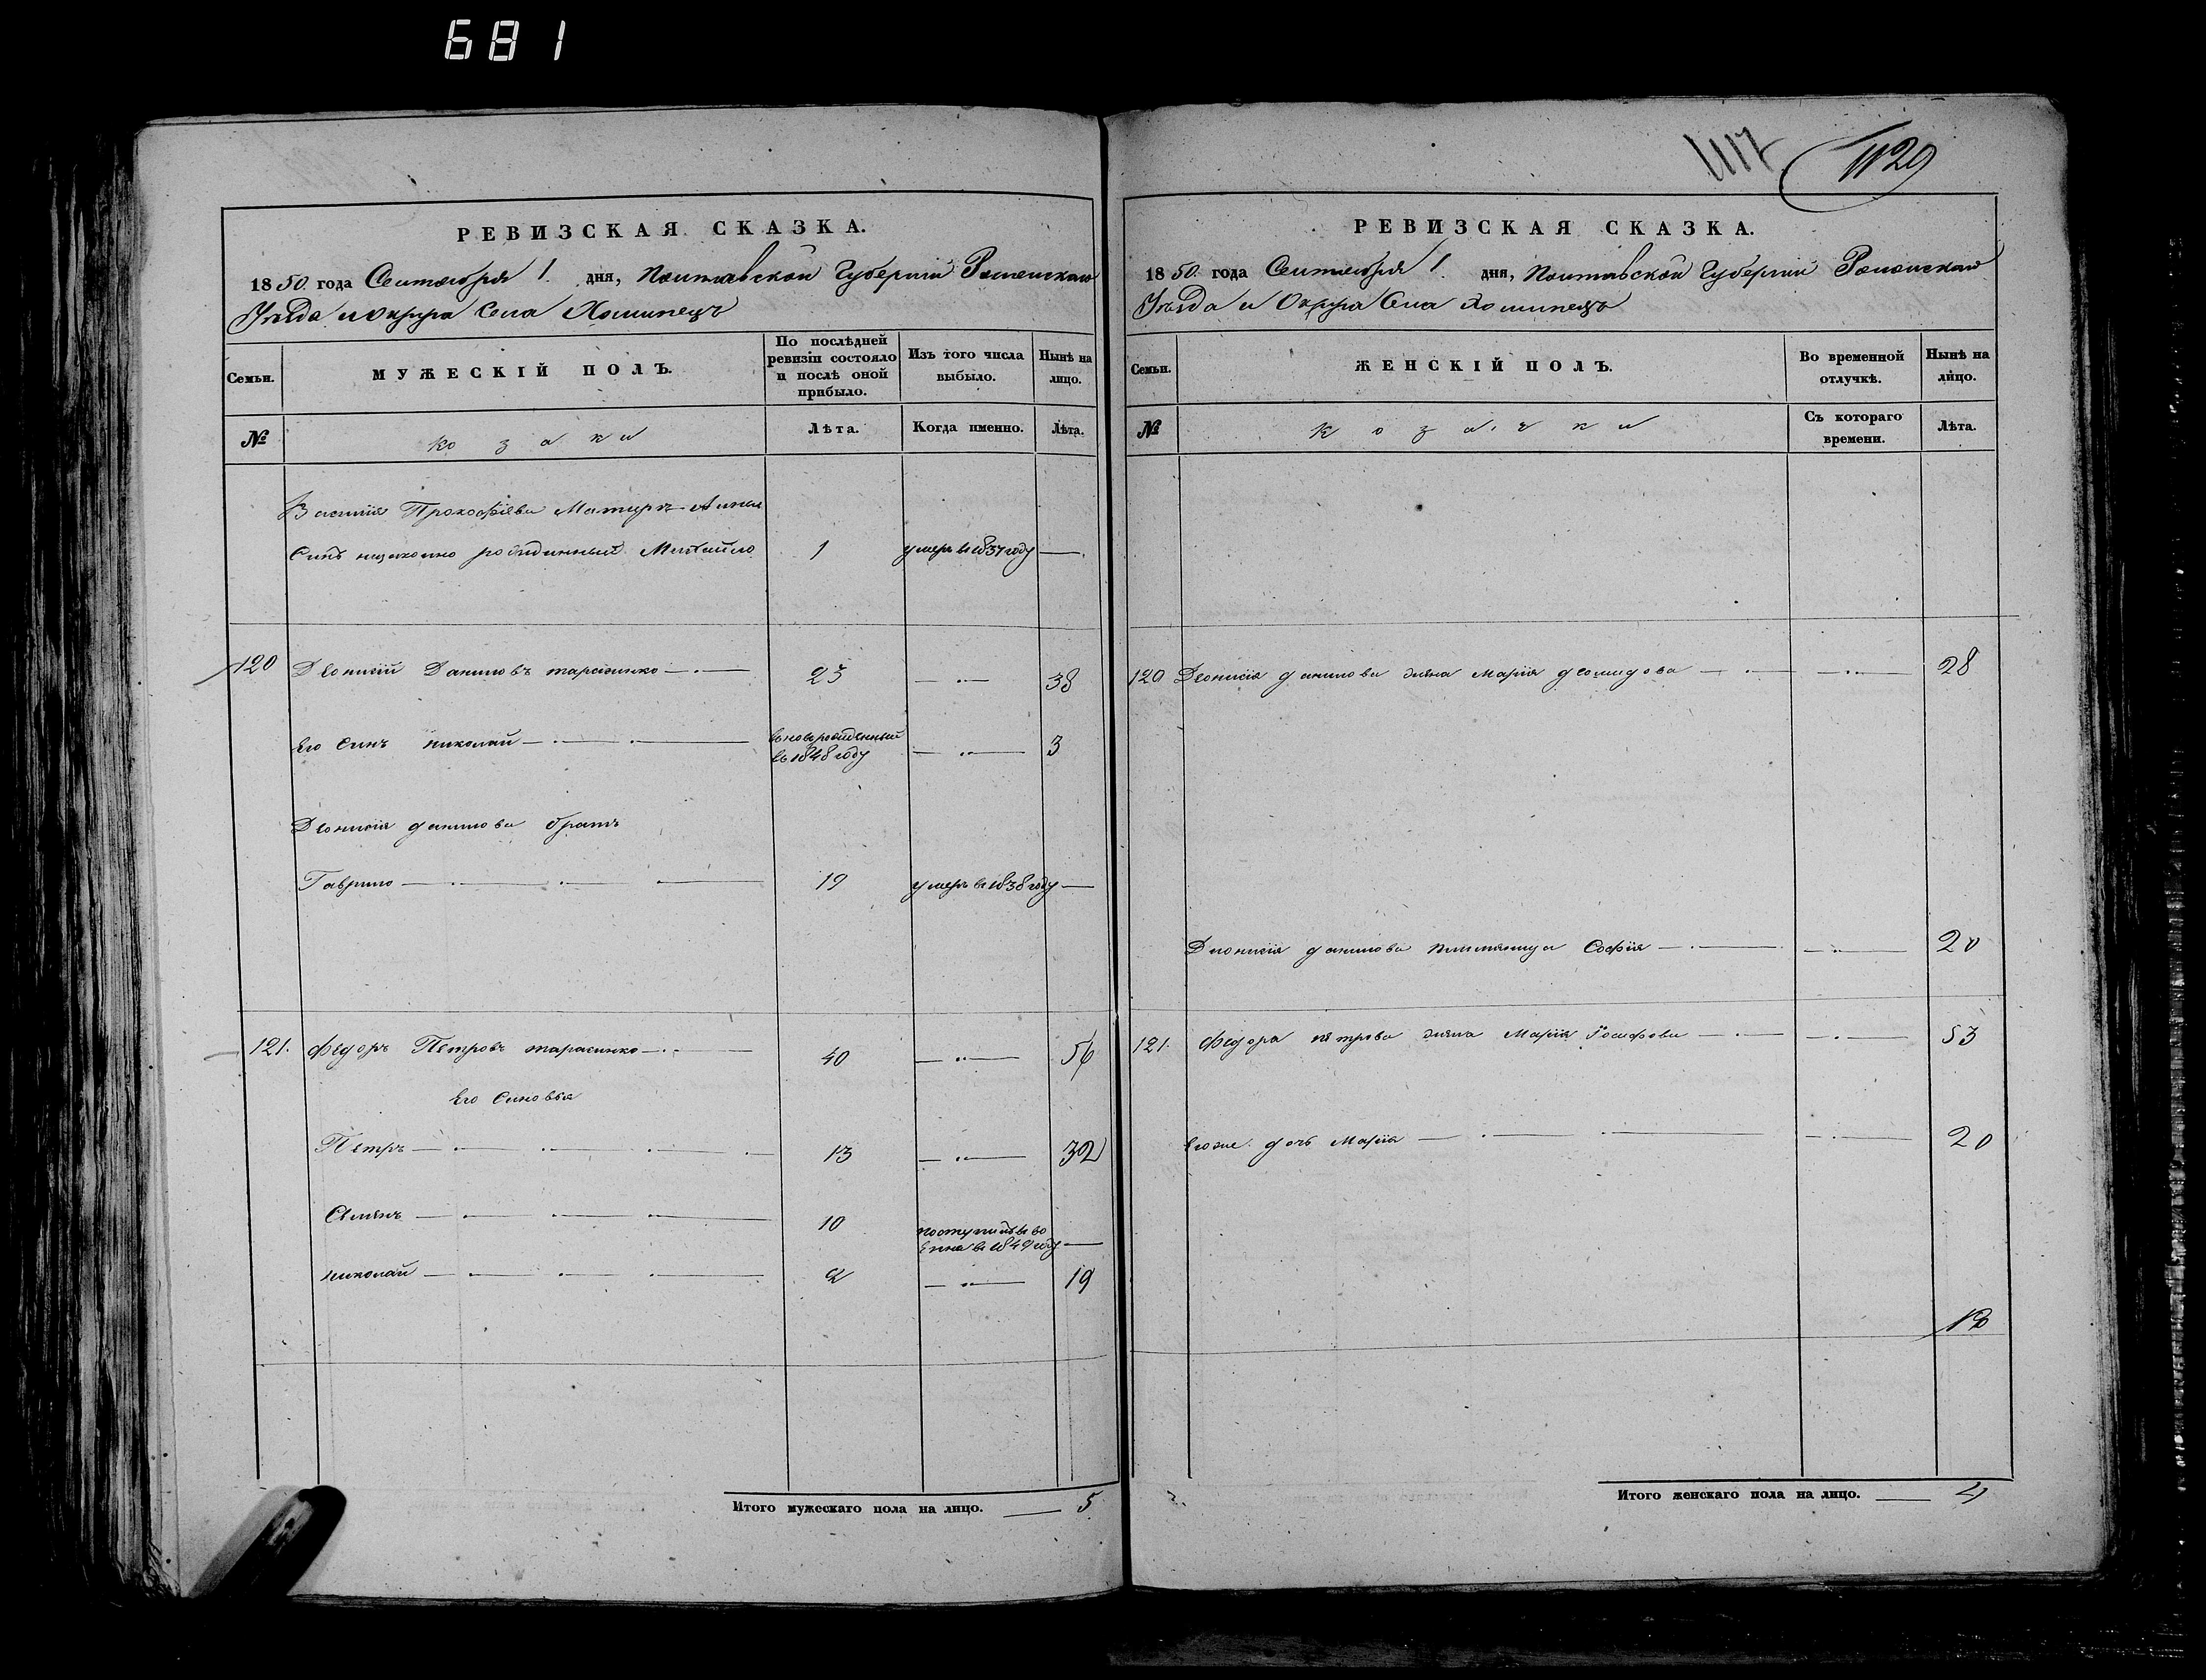 681
1117
1129
РЕВИЗСКАЯ СКАЗКА.
1850. года Сентября 1. дня, Полтавской Губернии Роменскаго
Уезда и Округа Села Хоминецъ
Семьи.
МУЖЕСКІЙ ПОЛЪ.
По послѣдней ревизіи состояло и послѣ оной прибыло.
Изъ того числа выбыло.
Нынѣ на лицо.
№
козаки
Лѣта.
Когда именно.
Лѣта.
Василія Прокофіева Матери Анны
Синъ незаконно рожденный Михайло 1 умеръ въ 1837 году —
120 Деонисій Даниловъ тарасенко 23 — 38
Его Синъ николай — новорожденный въ 1848 году — 3
Деонисія данилова братъ
Гаврило — 19 умеръ въ 1838 году —
121. Федоръ Петровъ тарасенко — 40 — 56
Его Синовья
Петръ — 13 — 32
Семенъ — 10 поступилъ въ 1849 году —
николай — 2 — 19
Итого мужескаго пола на лицо. — 5.
РЕВИЗСКАЯ СКАЗКА.
1850. года Сентября 1. дня, Полтавской Губернии Роменскаго
Уезда и Округа Села Хоминецъ
Семьи.
ЖЕНСКІЙ ПОЛЪ.
Во временной отлучкѣ.
Нынѣ на лицо.
№
козачки
Съ котораго времени.
Лѣта.
120 Деонисія данилова жена Марія деомидова — 28
Деонисія данилова племяница Софія — 20
121. Федора петрова жена Марія Іосифова — 53
Егоже дочь Марія — 20
Итого женскаго пола на лицо. — 4